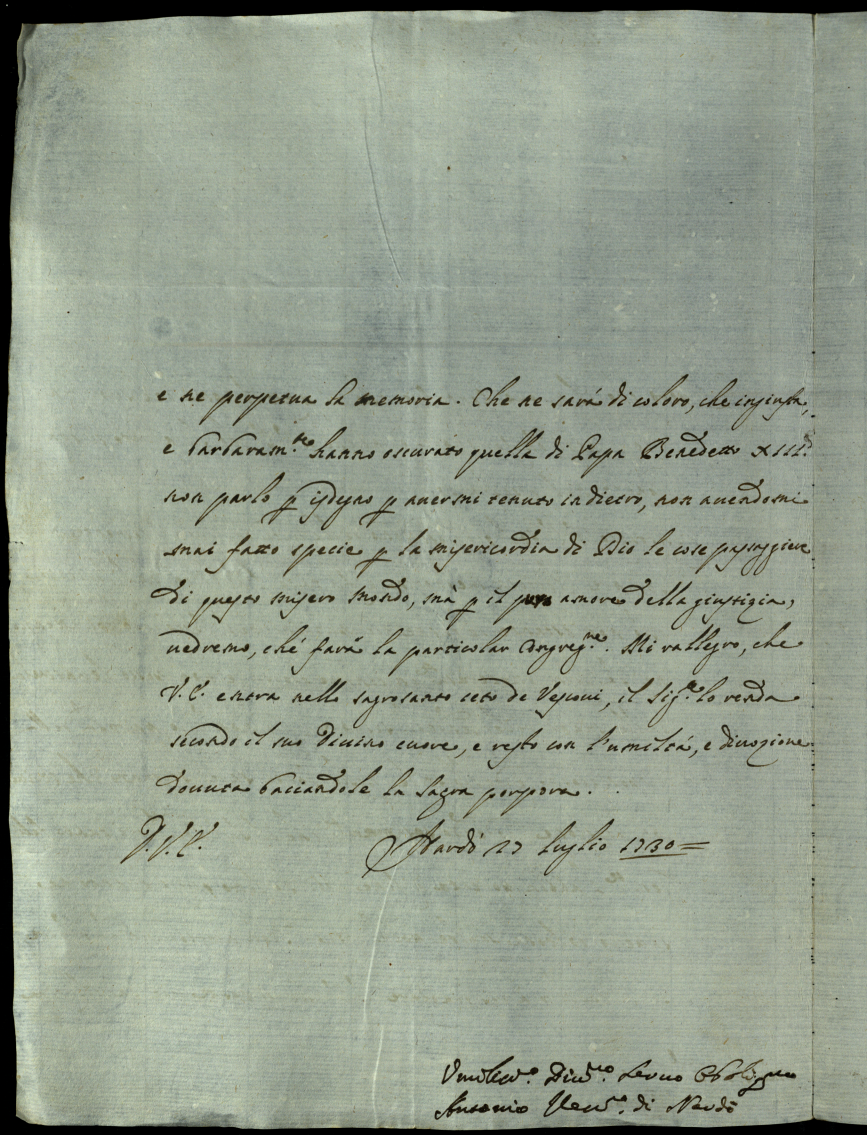 e ne perpetua la memoria. Che ne sarà di coloro, che ingiusta,
e barbaram.te hanno oscurato quella di Papa Benedetto XIII.
non parlo p isdegno p avermi tenuto indietro, non avendomi
mai fatto specie p la misericordia di Dio le cose passaggiere
di questo misero mondo, mà p il puro amore della giustizia,
vedremo, ché farà la particolar Congreg.ne. Mi rallegro, che
V.E. entra nello sagrosanto ceto de Vescovi, il Sig.re lo renda
secondo il suo Divino cuore, e resto con l'umiltà, e divozione
dovuta baciandole la sagra porpora.
D.V.E. Nardò 27 luglio 1730=
Umiliss.o Div.mo Servo Obblig.mo
Antonio Vesc.o di Nardò